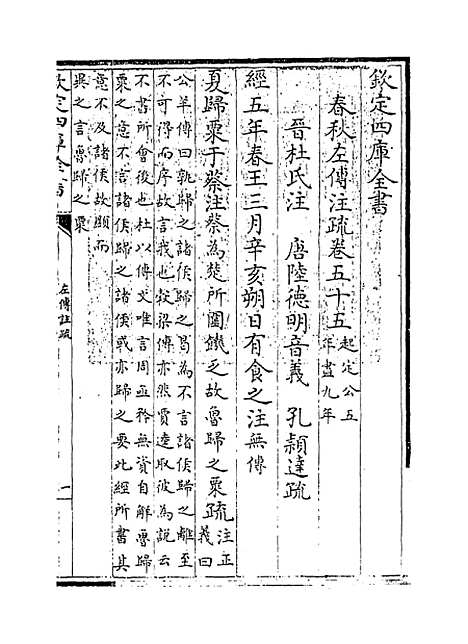 欽定四庫全書
春秋左傳注疏卷五十五起定公五年盡九年
晉杜氏注 唐陸德明音義 孔穎達疏
經五年春王三月辛亥朔日有食之注無傳
夏歸粟于蔡注蔡為楚所圍饑乏故魯歸之粟疏注正義曰
公羊傳曰孰歸之諸侯歸之曷為不言諸侯歸之離至
不可得而序故言我也穀梁傳亦然賈逵取彼為說云
不書所會後也杜以傳文唯言周亟矜無資自解魯歸
粟之意不言諸侯歸之諸侯或亦歸之要此經所書其
意不及諸侯故顯而
異之言魯歸之粟
欽定四庫全書
左傳注疏
一